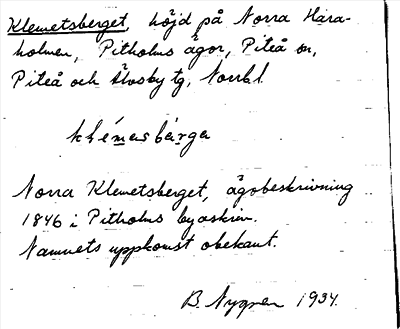 Klemetsberget, höjd på Norra Hara-
holmen, Pitholms ägor, Piteå sn,
Piteå och Älvsby tg, Norrb.l.
klémasbärga
Norra Klemetsberget, ägobeskrivning
1846 i Pitholms byaskrin.
Namnets uppkomst obekant.
B. Nygren 1934.